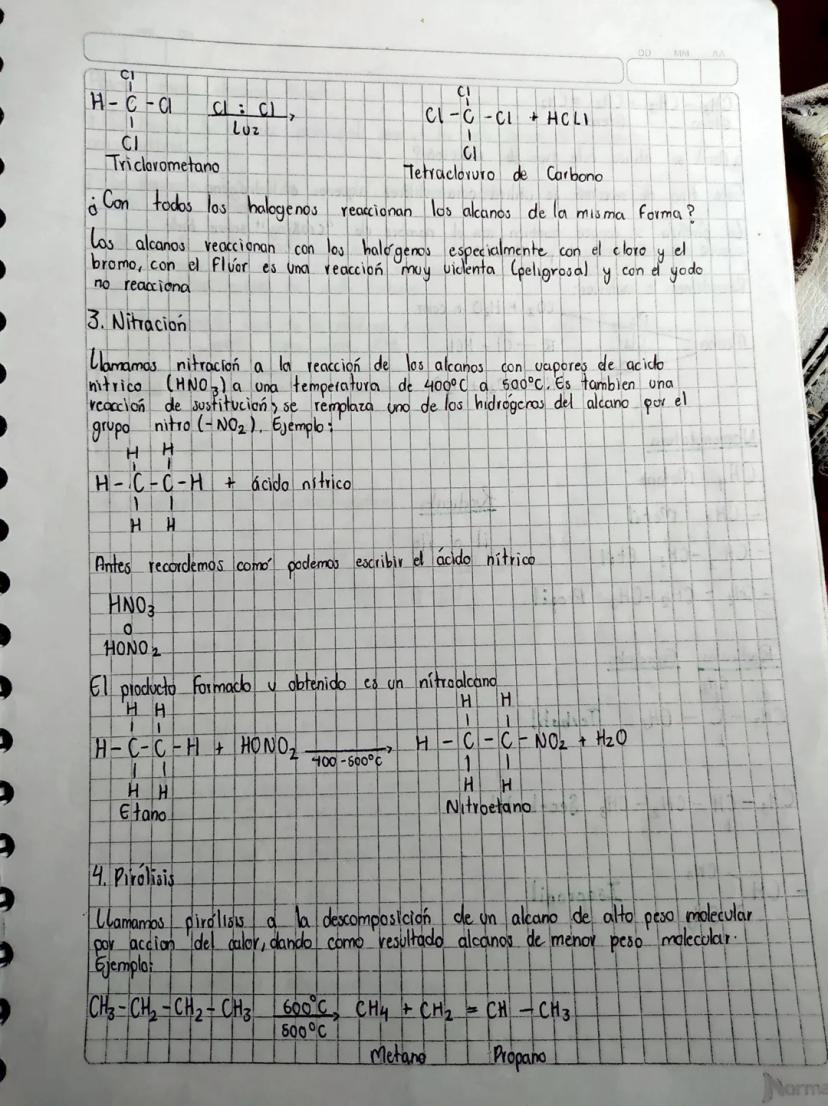 DD MM AA
Cl
H - C - Cl Cl : Cl Cl
Luz Cl - C - Cl + HCL1
Cl Cl
Triclorometano Tetracloruro de Carbono
¿Con todos los halogenos reaccionan los alcanos de la misma forma?
Los alcanos reaccionan con los halógenos especialmente con el cloro y el
bromo, con el Flúor es una reacción muy violenta (peligrosa) y con el yodo
no reacciona
3. Nitración
Llamamos nitración a la reacción de los alcanos con vapores de acido
nítrico (HNO3) a una temperatura de 400°C a 500°C. Es tambien una
reacción de sustitución, se remplaza uno de los hidrógenos del alcano por el
grupo nitro (-NO2). Ejemplo:
H H
H - C - C - H + ácido nítrico
H H
Antes recordemos como podemos escribir el ácido nítrico
HNO3
o
HONO2
El producto Formado y obtenido es un nitroalcano
H H H H
H - C - C - H + HONO2 400-500°C H - C - C - NO2 + H2O
H H H H
Etano Nitroetano
4. Pirólisis
Llamamos pirólisis a la descomposición de un alcano de alto peso molecular
por accion del calor, dando como resultado alcanos de menor peso molecular.
Ejemplo:
CH3 - CH2 - CH2 - CH3 600°C CH4 + CH2 = CH - CH3
500°C
Metano Propano
Norma